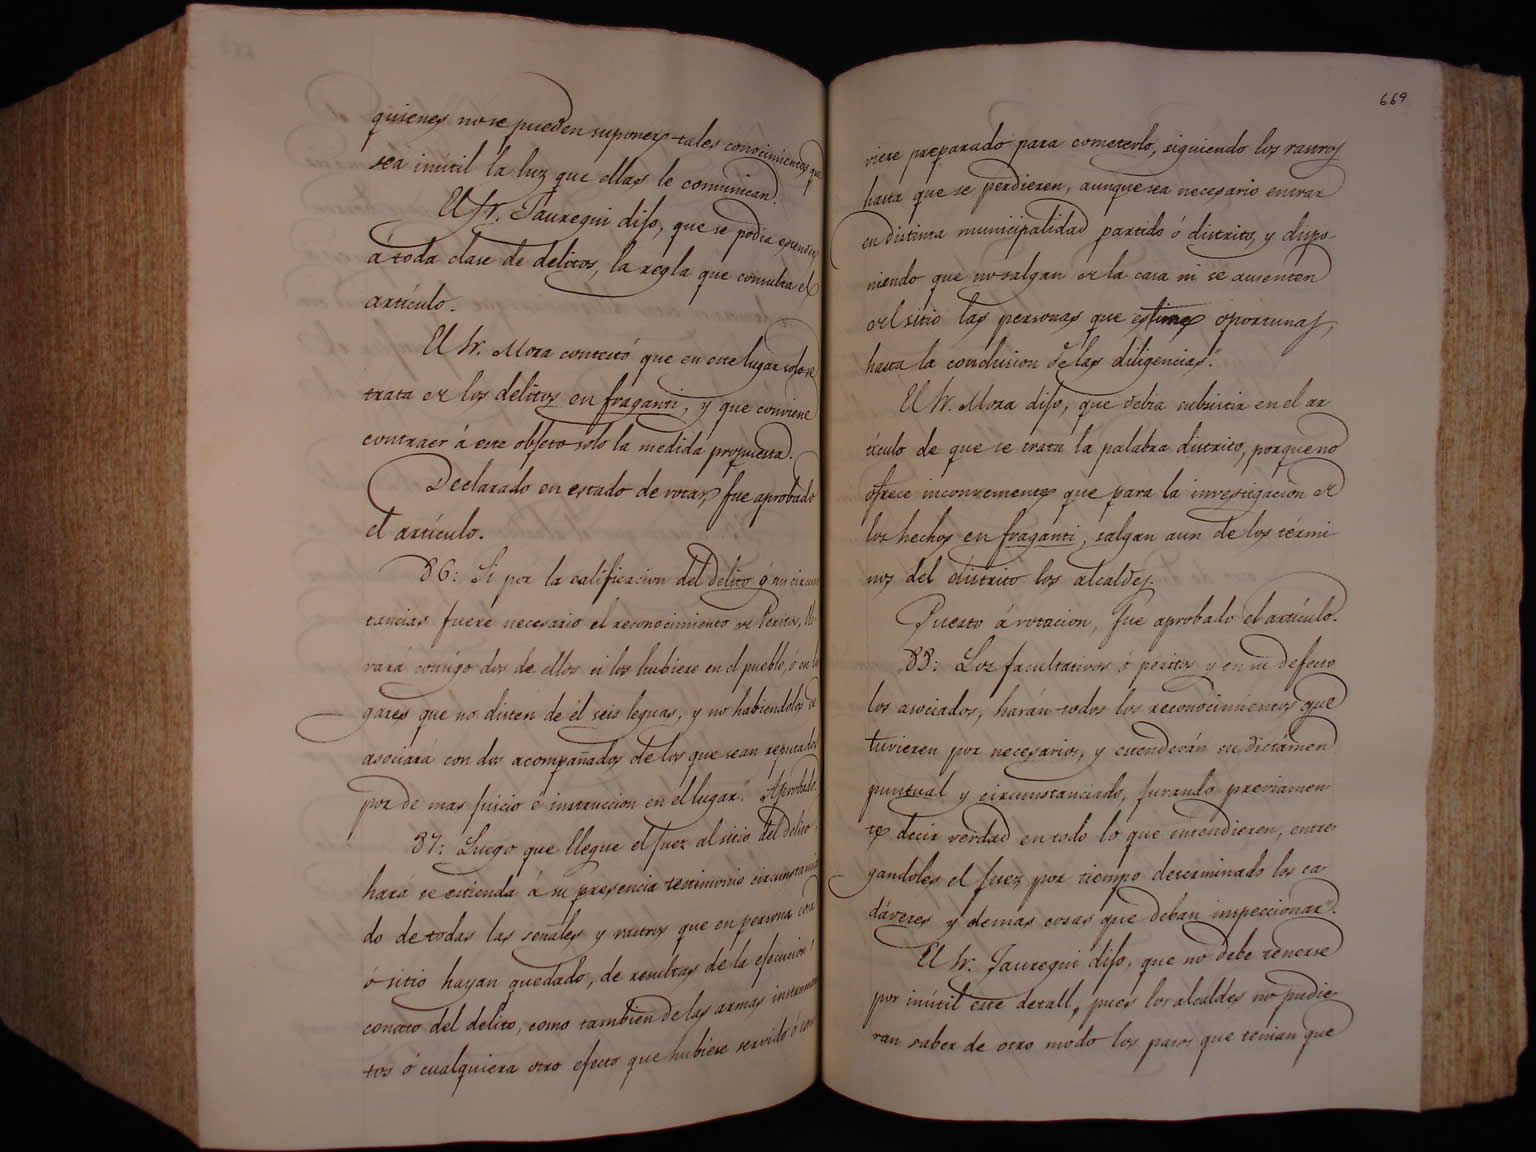 quienes no se pueden suponer tales conocimientos que
sea inutil la luz que ellas le comunican.
El Sr. Jauregui dijo, que se podia estender
á toda clase de delitos, la regla que consulta el
artículo.
El Sr. Mora contestó que en este lugar solo se
trata de los delitos en fraganti, y que conviene
contraer á este objeto solo la medida propuesta.
Declarado en estado de votar, fue aprobado
el artículo.
86: Si por la calificacion del delito ó sus circuns
tancias fuere necesario el reconocimiento de Peritos, lle
vará consigo dos de ellos si los hubiere en el pueblo, ó en lu
gares que no disten de él seis leguas, y no habiendolos se
asociará con dos acompañados de los que sean reputados
por de mas juicio é instruccion en el lugar." Aprobado.
87: Luego que llegue el juez al sitio del delito,
hará se estienda á su presencia testimonio circunstancia
do de todas las señales y rastros que en persona cosa
ó sitio hayan quedado, de resultas de la ejecucion ó
conato del delito, como tambien de las armas instrumen
tos ó cualquiera otro efecto que hubiese servido ó con
669
viere preparado para cometerlo, siguiendo los rastros
hasta que se perdieren, aunque sea necesario entrar
en distinta municipalidad partido ó distrito, y dispo-
niendo que no salgan de la casa ni se ausenten
del sitio las personas que estime oportunas,
hasta la conclusion de las diligencias."
El Sr. Mora dijo, que debia subsistir en el ar
tículo de que se trata la palabra distrito, porque no
ofrece inconveniente que para la investigacion de
los hechos en fraganti, salgan aun de los térmi
nos del distrito los alcaldes.
Puesto á votacion, fue aprobado el artículo.
88: Los facultativos ó peritos y en su defecto
los asociados, harán todos los reconocimientos que
tuvieren por necesarios, y estenderán su dictámen
puntual y circunstanciado, jurando previamen
te decir verdad en todo lo que entendieren, entre
gandoles el juez por tiempo determinado los ca
dáveres y demas cosas que deban inspeccionar.
El Sr. Jauregui dijo, que no debe tenerse
por inútil este detall, pues los alcaldes no pudie
ran saber de otro modo los pasos que tenian que